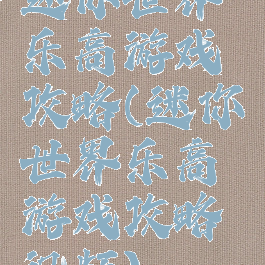 迷你世界
乐高游戏
攻略(迷你
世界乐高
游戏攻略
视频)